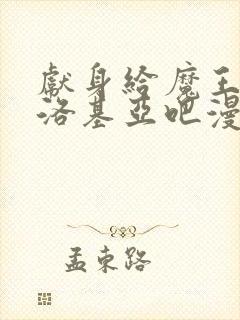 獻身給魔王
洛基亞吧漫
孟東路